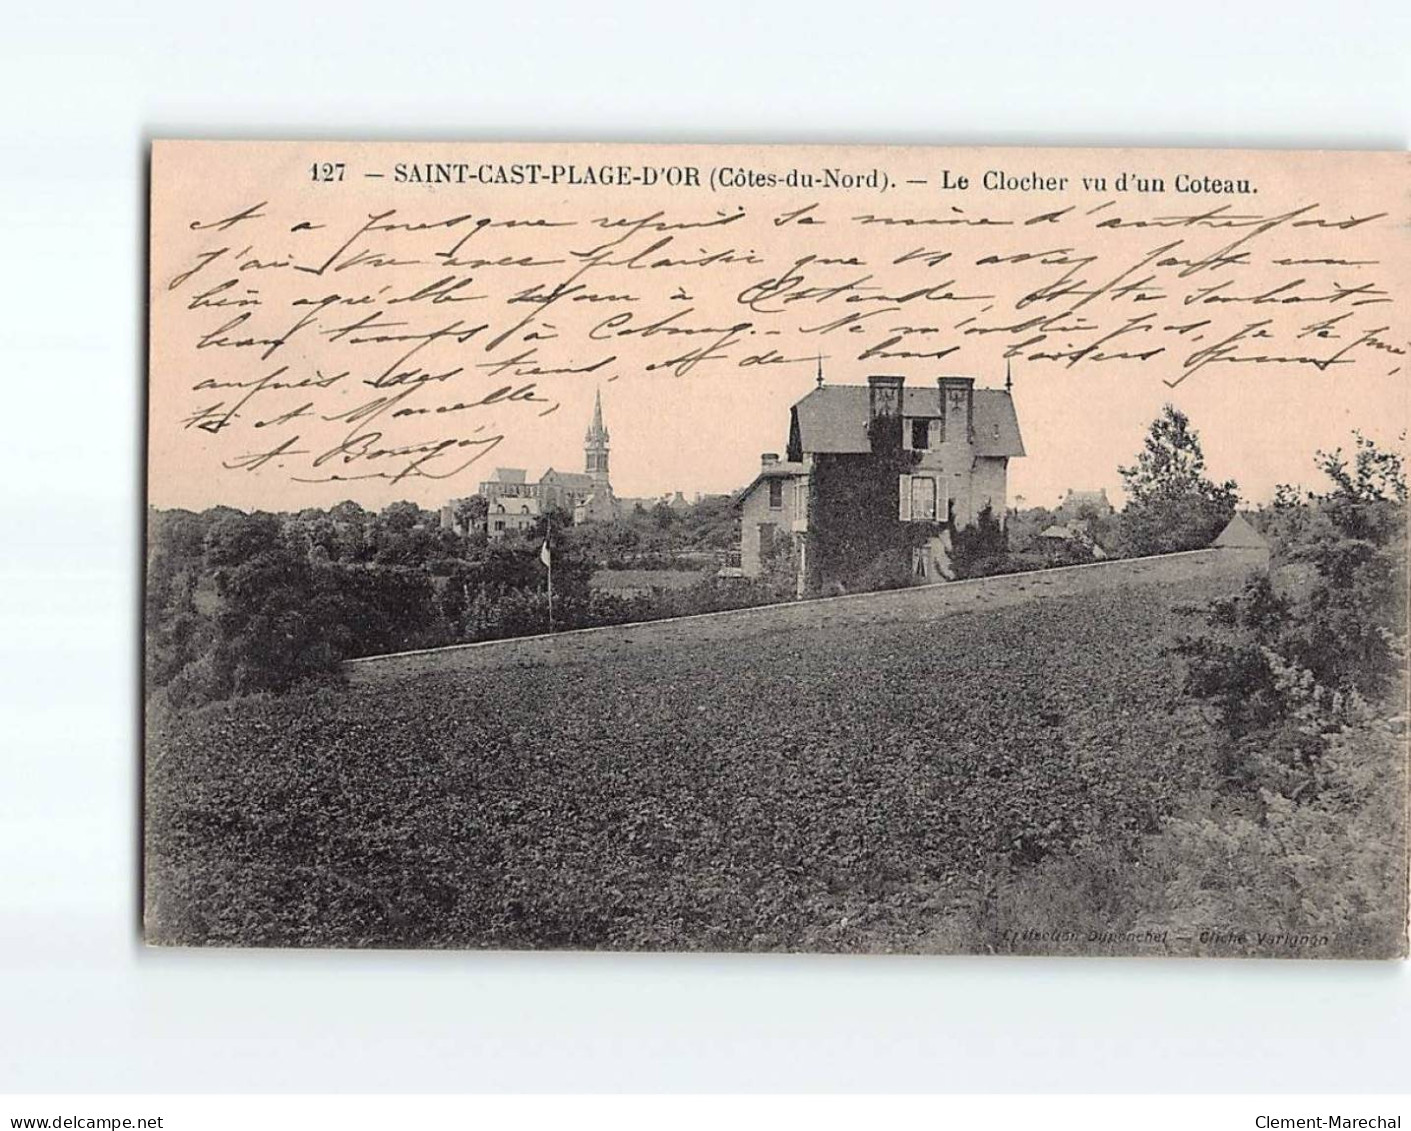 127 — SAINT-CAST-PLAGE-D'OR (Côtes-du-Nord). — Le Clocher vu d'un Coteau.
A a presque repris sa mine d'autrefois
J'ai vu avec plaisir que vs avez fait un
bien agréable séjour à Ostende, et te souhaite
beau temps à Cabourg. - Ne m'oublie pas, je te prie
auprès des tiens, et de bons baisers pour
toi et Marcelle,
A. Bourgès
Collection Duponchel — Cliché Varignon
www.delcampe.net
Clement-Marechal